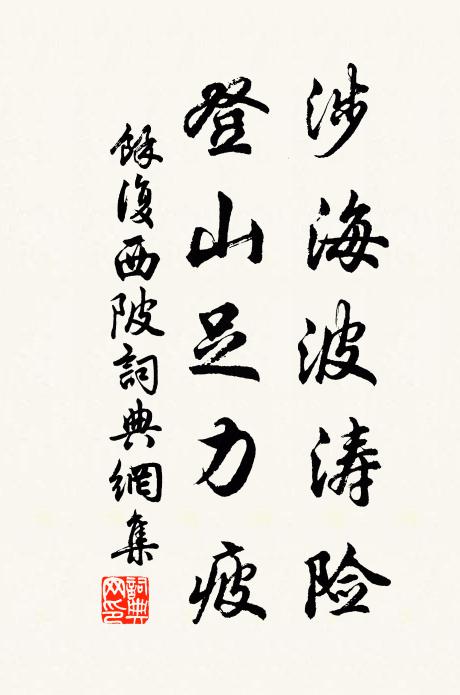 涉海波涛险
登山足力疲
餘復西陂詞典網集
詞典网印